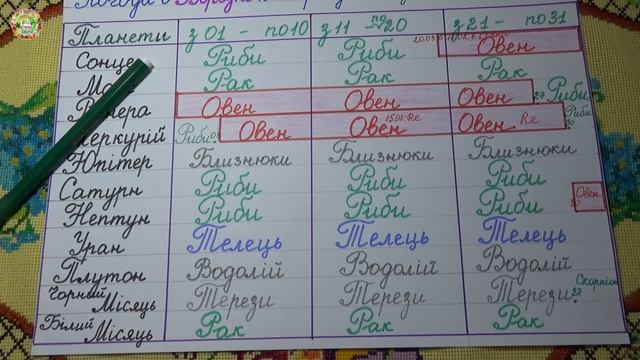 Погода в
Планети з 01 - по 10 з 11 - по 20 з 21 - по 31
Сонце Риби Риби Овен
Рак Рак Рак
Венера Овен Овен Овен 27 Риби
Меркурій Риби Овен Овен 15.03 Re Овен Re. Риби 30
Юпітер Близнюки Близнюки Близнюки
Сатурн Риби Риби Риби
Нептун Риби Риби Риби Овен 30
Уран Телець Телець Телець
Плутон Водолій Водолій Водолій
Чорний Місяць Терези Терези Терези 27 Скорпіон
Білий Місяць Рак Рак Рак